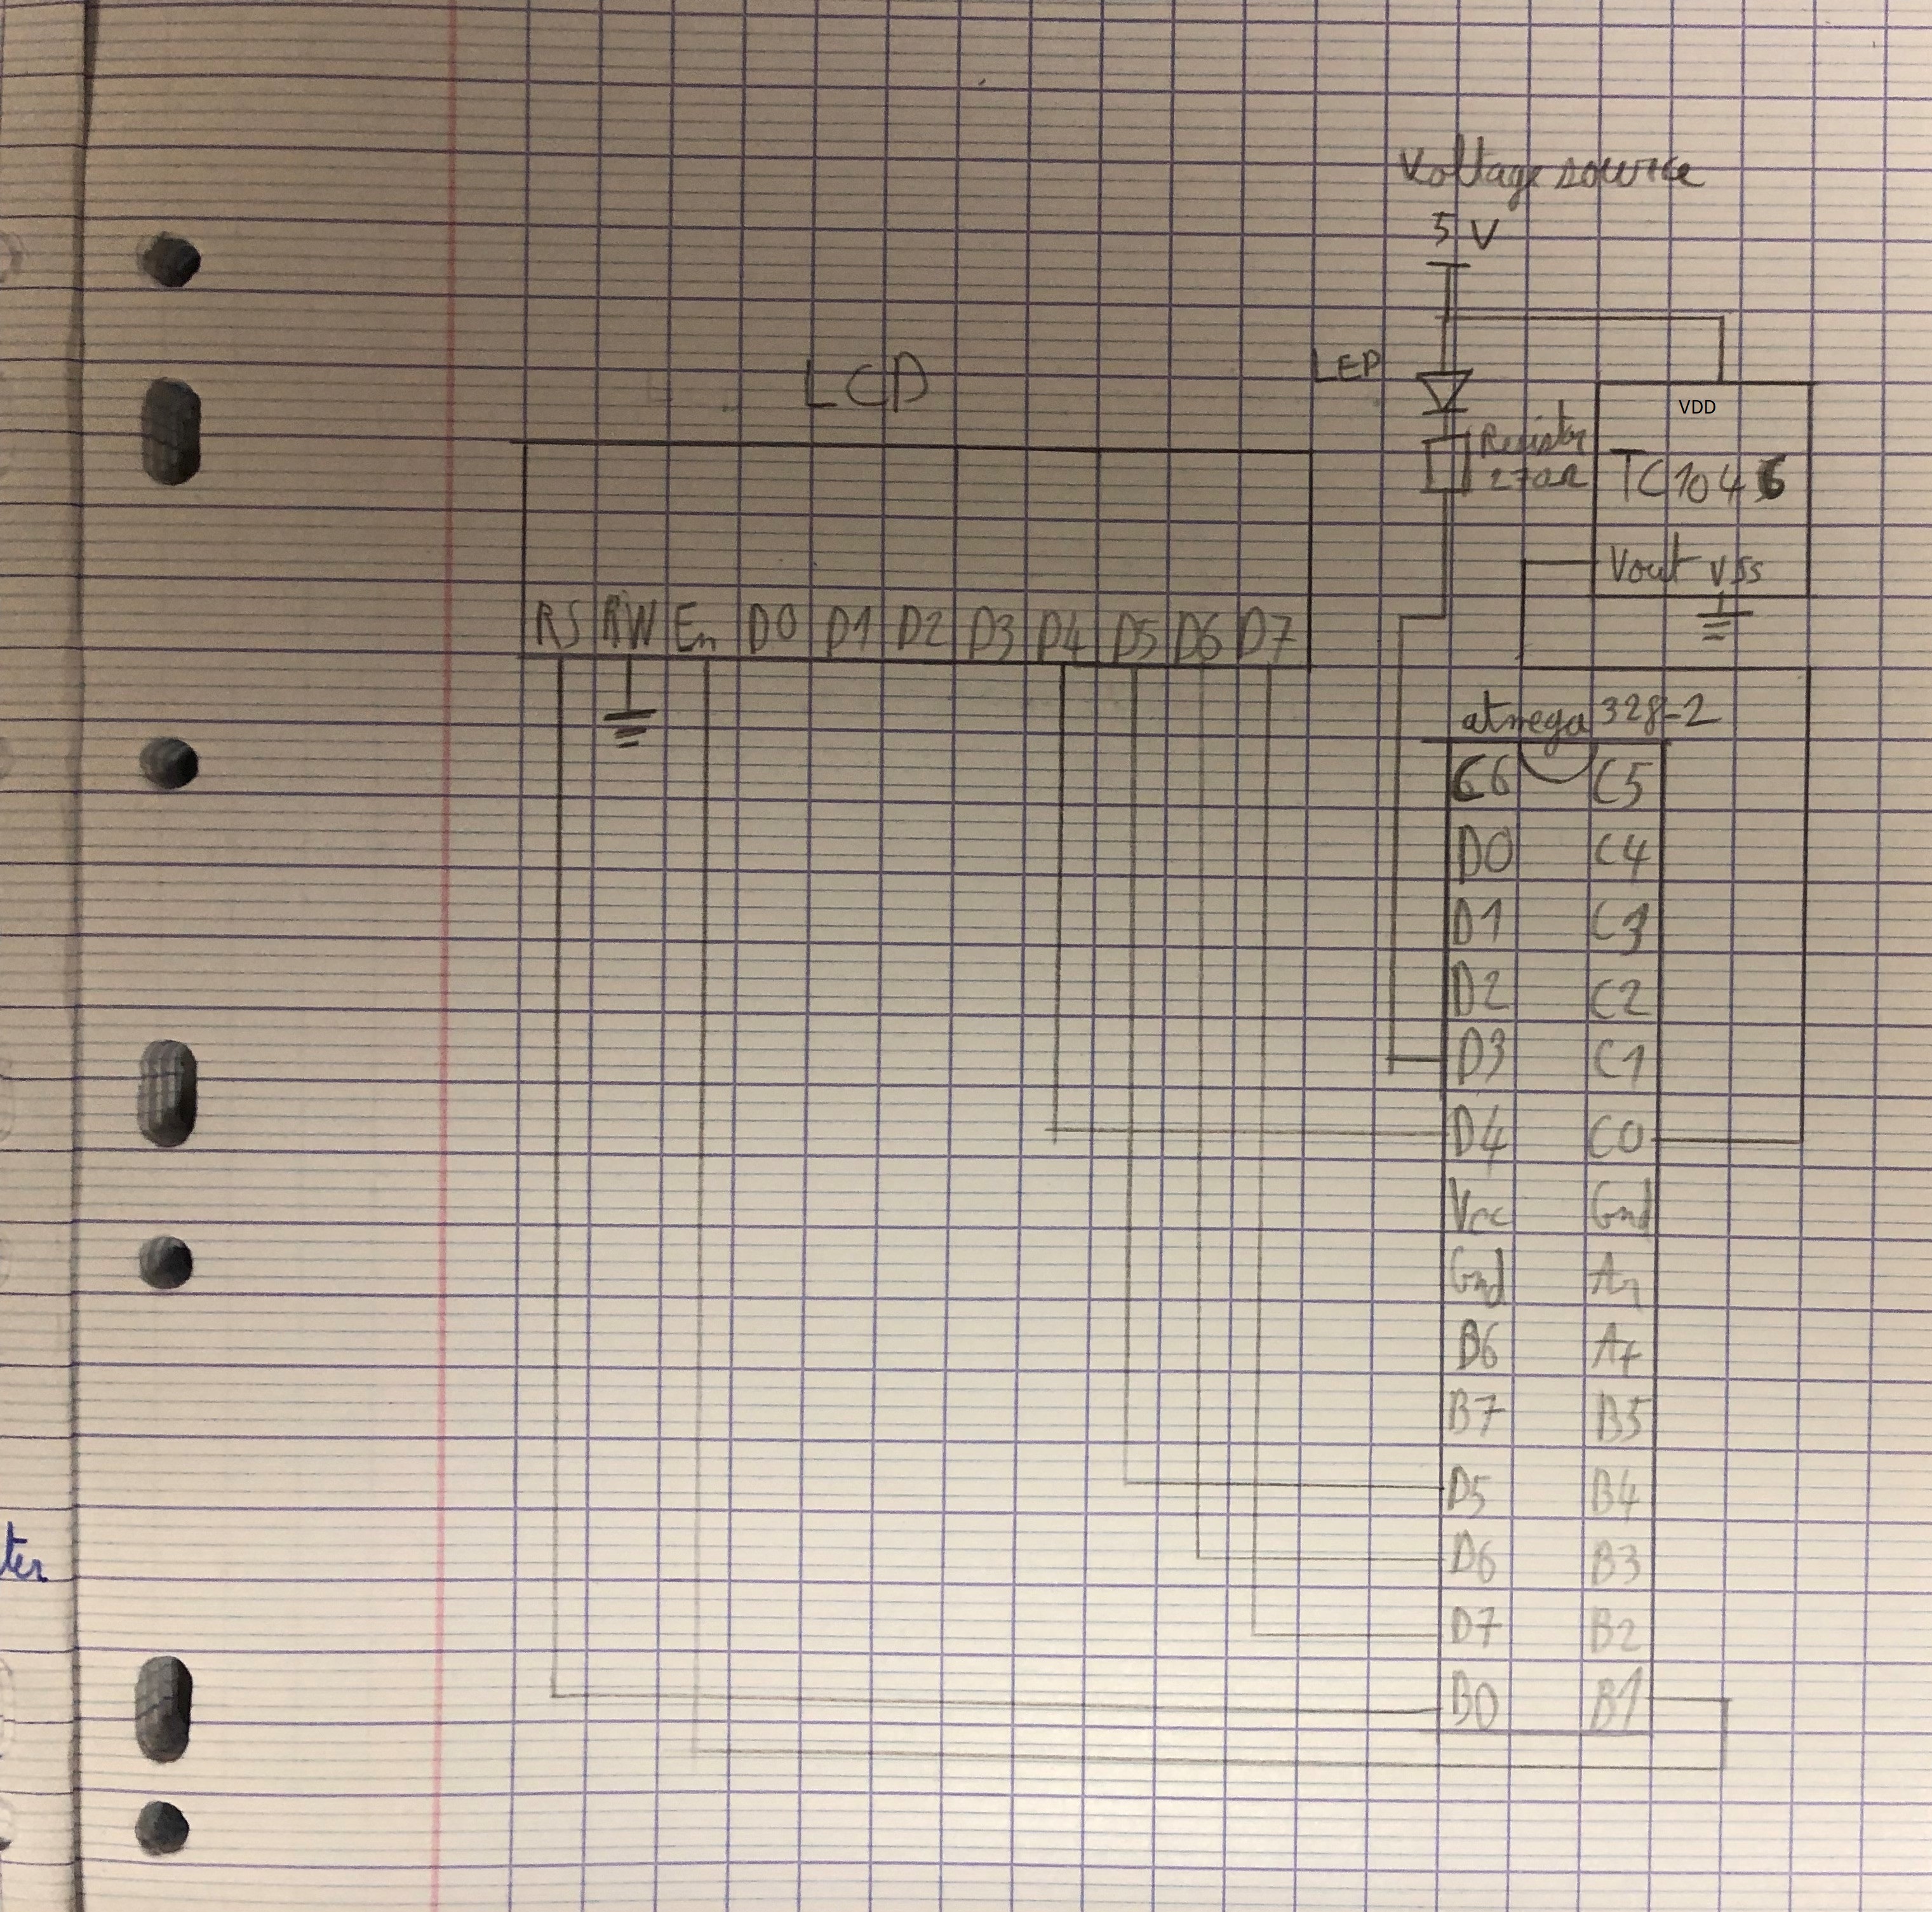 Voltage source
5 V
LCD
LED
VDD
Resistor
270Ω
TC1046
Vout Vss
RS RW En D0 D1 D2 D3 D4 D5 D6 D7
atmega 328-2
C6 C5
D0 C4
D1 C3
D2 C2
D3 C1
D4 C0
Vcc Gnd
Gnd
B6
B7 B5
D5 B4
D6 B3
D7 B2
B0 B1
ter